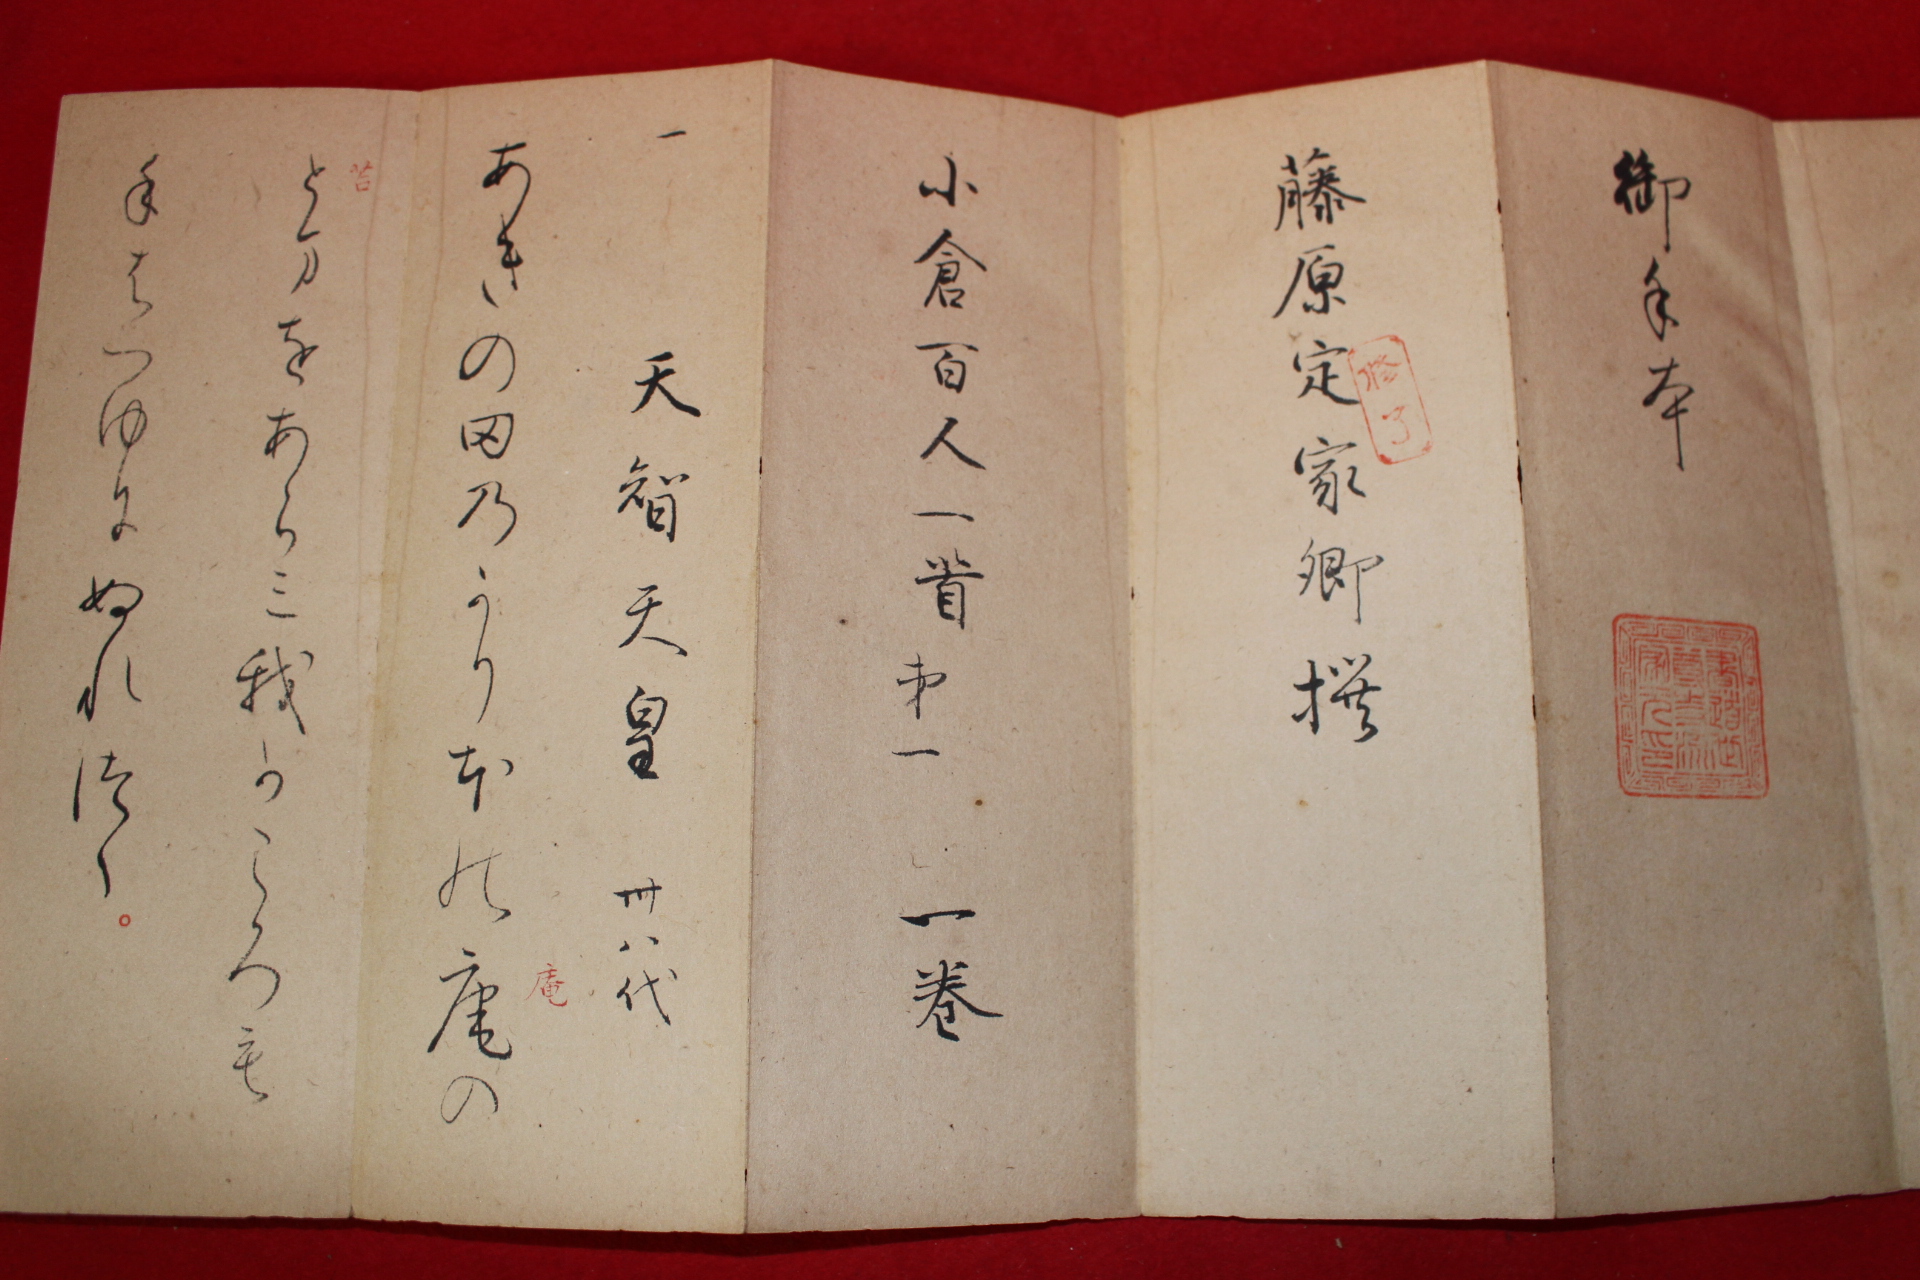 御手本
藤原定家卿撰
修了
小倉百人一首 第一 一巻
一
天智天皇 卅八代
あきの田乃かりほの庵の
庵
とまをあらミ我かころも
苫
手はつゆにぬれつゝ